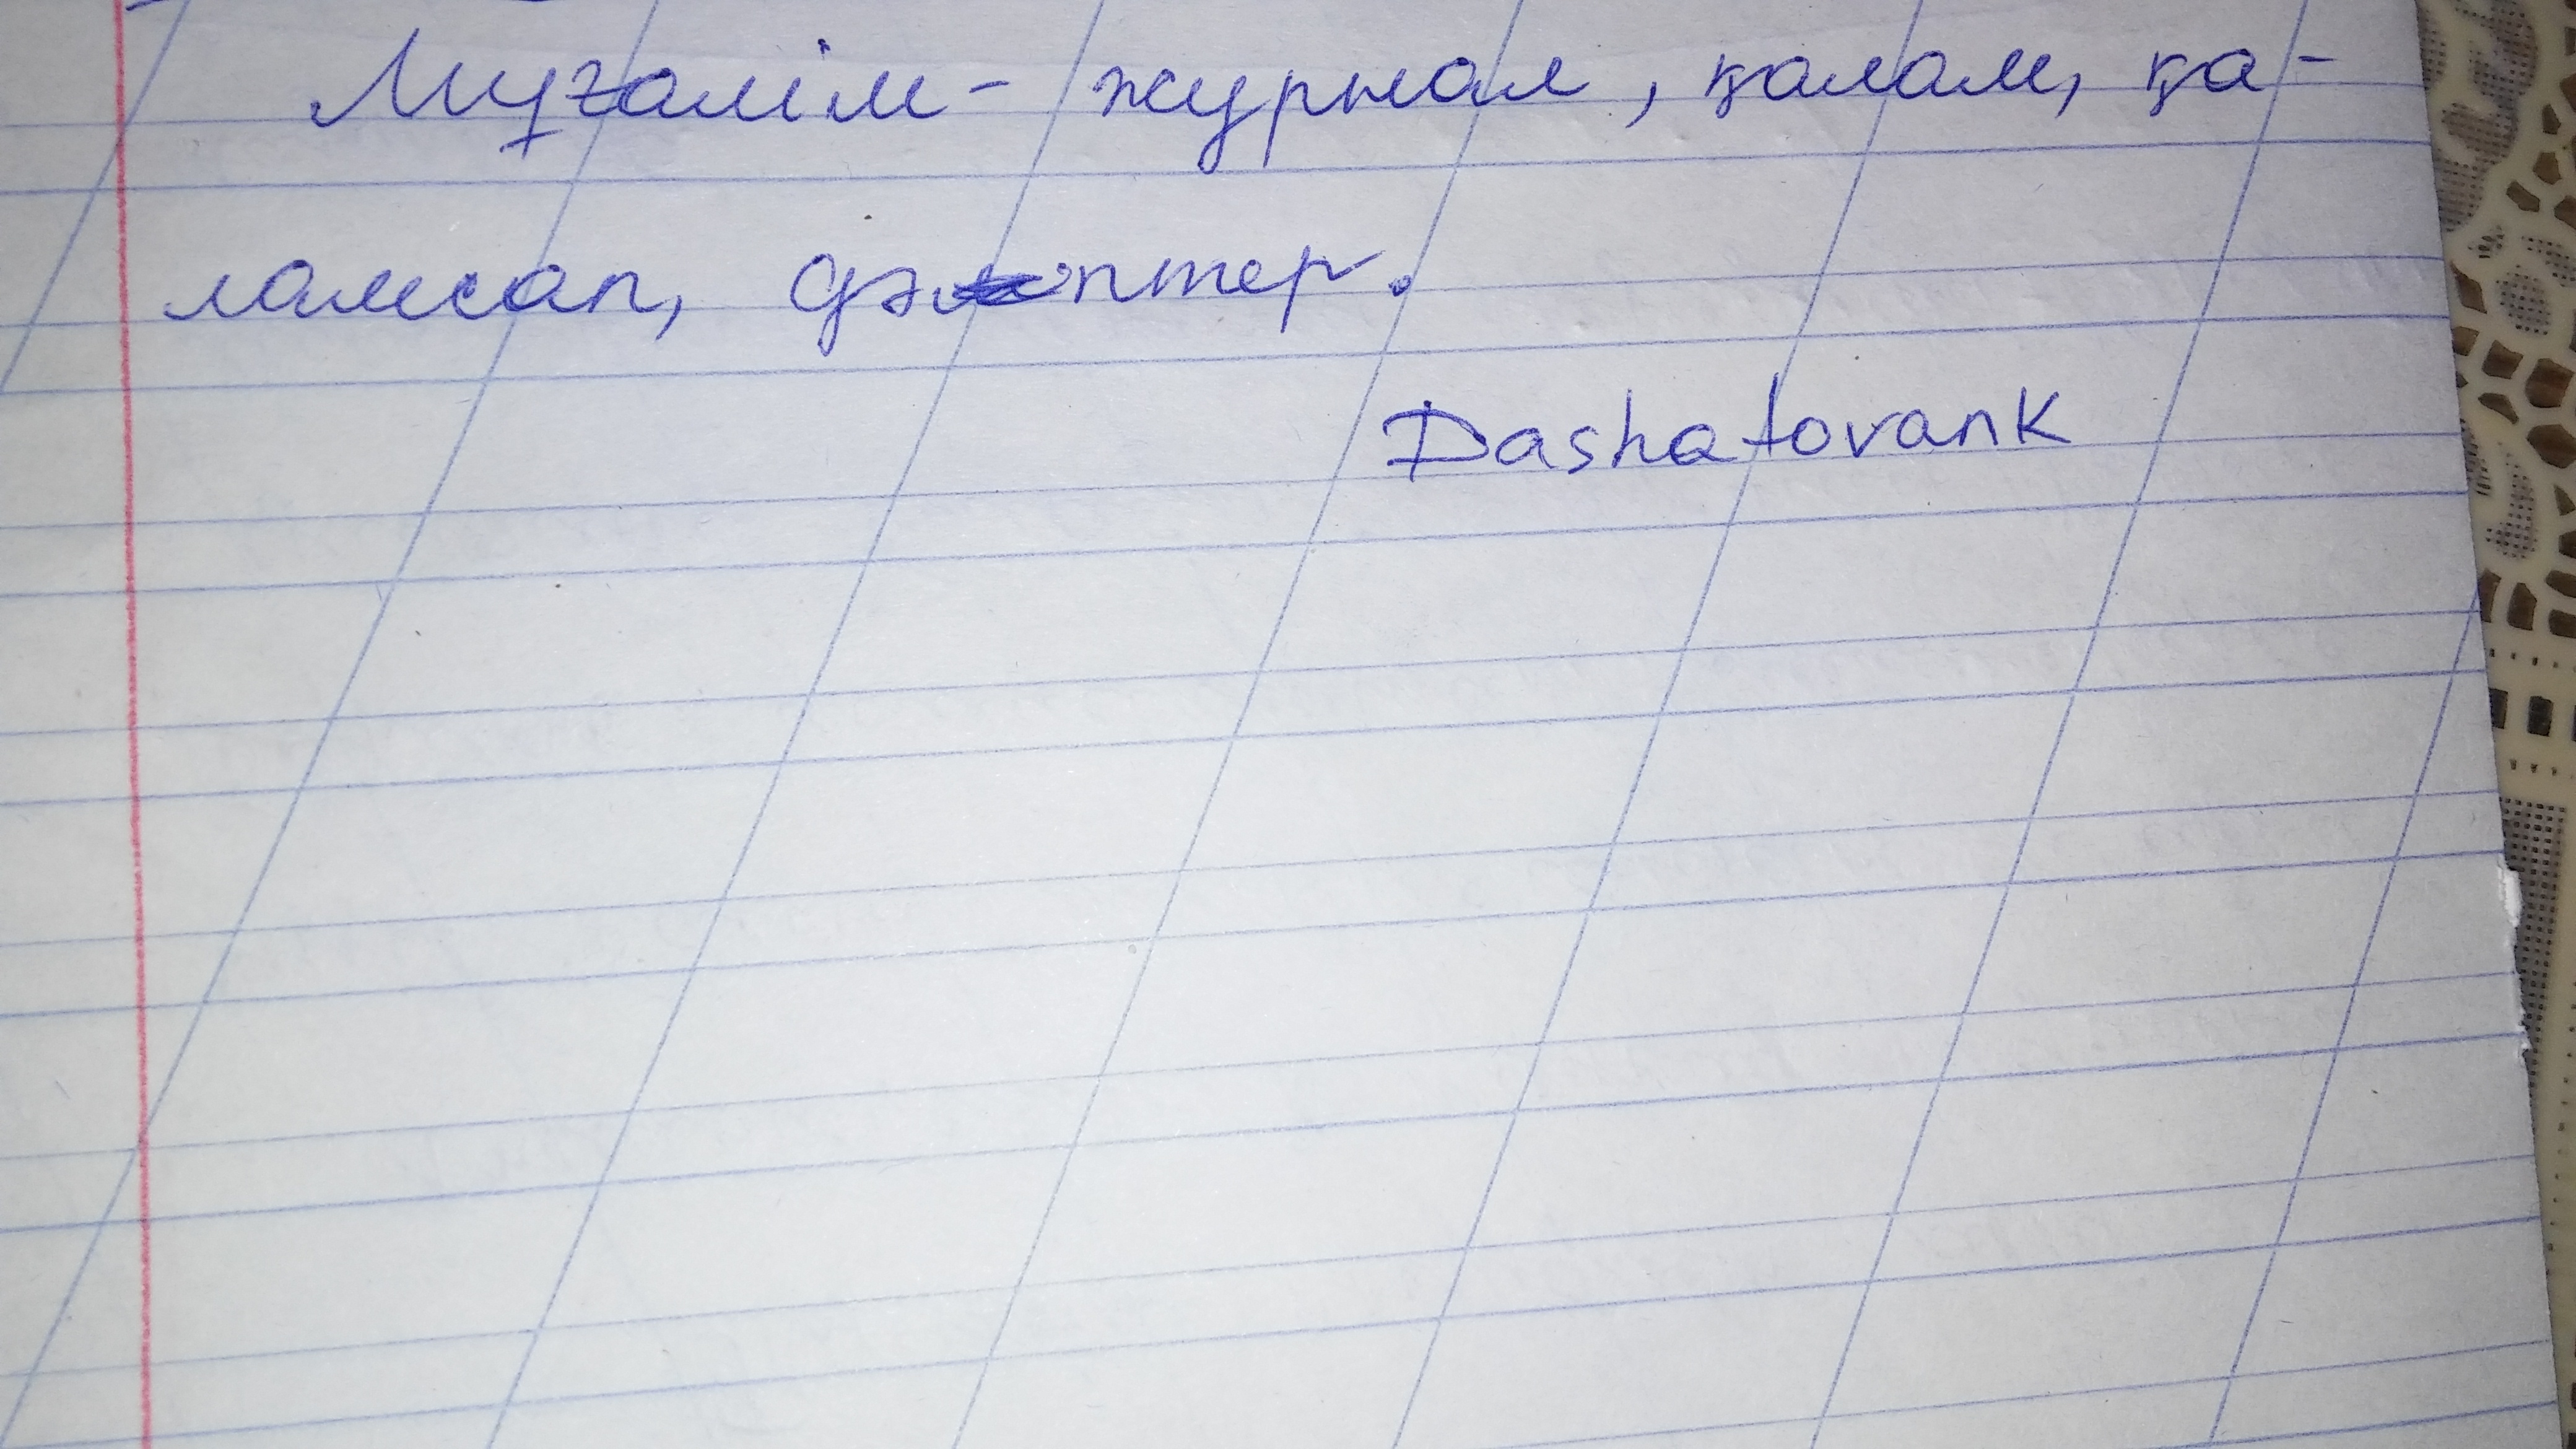 Мұғалім - журнал, қалам, қа-
ламсап, дәптер.
Dashatovank